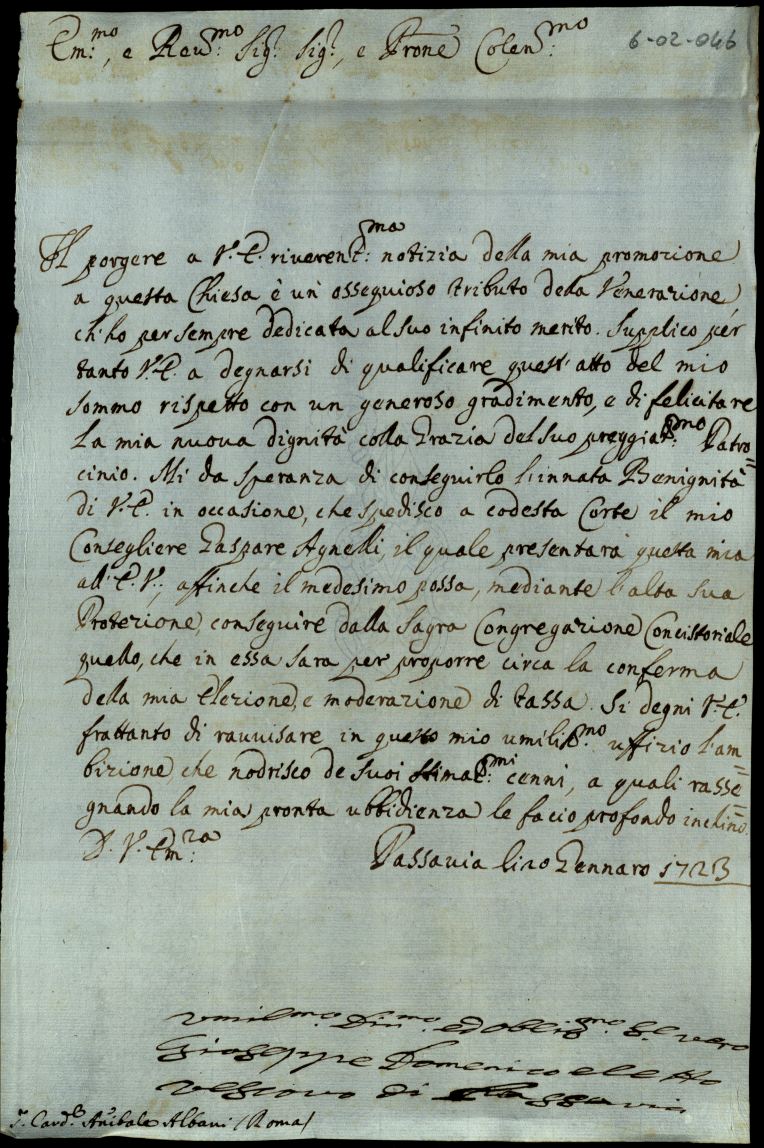 Em:mo, e Reu:mo Sig:r Sig:r, e Prone Colen:mo
6-02-046
Il porgere a V. E. riverent:ma notizia della mia promozione
a questa Chiesa è un' ossequioso tributo della Venerazione,
ch'ho per sempre dedicata al suo infinito merito. Supplico per
tanto V. E. a degnarsi di qualificare quest' atto del mio
sommo rispetto con un generoso gradimento, e di felicitare
la mia nuova dignità colla Grazia del suo preggiat:mo Patro=
cinio. Mi da speranza di conseguirlo l'innata Benignità
di V. E. in occasione, che spedisco a codesta Corte il mio
Consegliere Gaspare Agnelli, il quale presentarà questa mia
all' E. V., affinche il medesimo possa, mediante l'alta sua
Protezione, conseguire dalla Sagra Congregazione Concistoriale
quello, che in essa sara per proporre circa la conferma
della mia Elezione, e moderazione di tassa. Si degni V. E.
frattanto di ravvisare in questo mio umiliss:mo uffizio l'am=
bizione, che nodrisco de suoi stimat:mi cenni, a quali rasse=
gnando la mia pronta ubbidienza le facio profondo inclino.
D. V. Em:za
Passavia li Gennaro 1723
Umil:mo Diu:mo ed oblig:mo Se vero
Giuseppe Domenico eletto
vescovo di Passavia
S.r Card.le Anibale Albani (Roma)